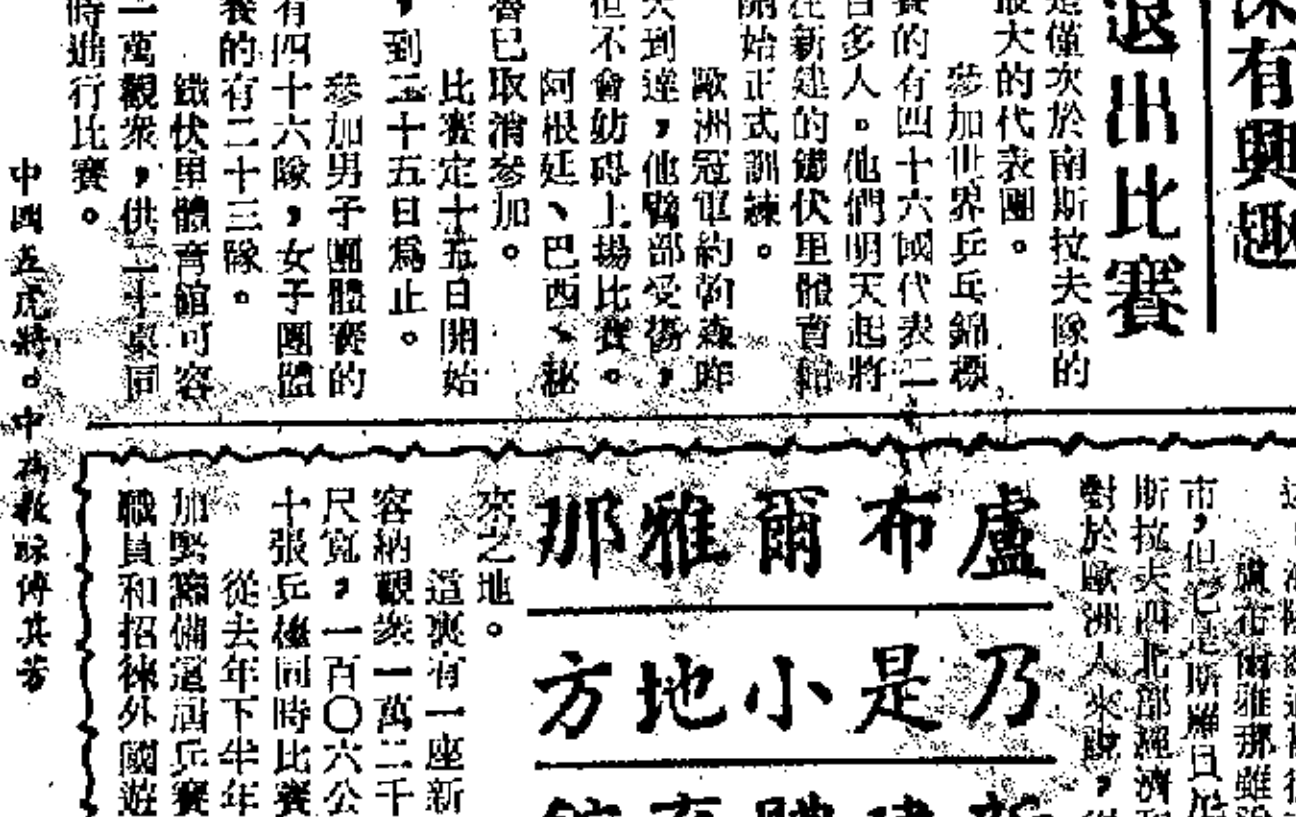 深有興趣
退出比賽
是僅次於南斯拉夫隊的
最大的代表團。
參加世界乒乓錦標
賽的有四十六國代表二
百多人。他們明天起將
在新建的鐵伏里體育館
開始正式訓練。
歐洲冠軍約翰森昨
天到達,他臂部受傷,
但不會妨碍上場比賽。
阿根廷、巴西、秘
魯已取消參加。
比賽定十五日開始
,到二十五日爲止。
參加男子團體賽的
有四十六隊,女子團體
賽的有二十三隊。
鐵伏里體育館可容
一萬觀衆,供二十桌同
時進行比賽。
中國五虎將。中爲教練傅其芳
盧布雅那雖
市,但它是斯羅
斯拉夫西北部經濟和
對於歐洲人來說,從
盧布爾雅那
乃是小地方
新建體育館
來之地。
這裏有一座新
容納觀衆一萬二千
尺寬,一百〇六公
十張乒檯同時比賽
從去年下半年
加緊籌備這屆乒賽
職員和招徠外國遊